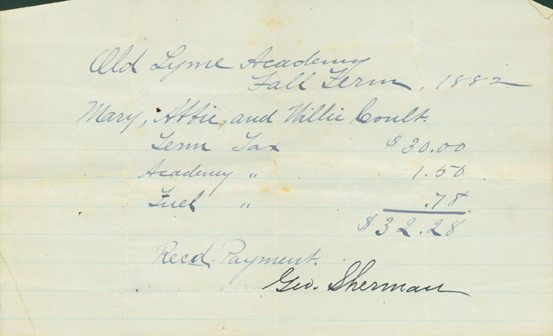 Old Lyme Academy
Fall Term, 1882
Mary, Attie, and Willie Coult.
Term Tax $30.00
Academy " 1.50
Fuel " .78
$32.28
Recd. Payment.
Geo. Sherman